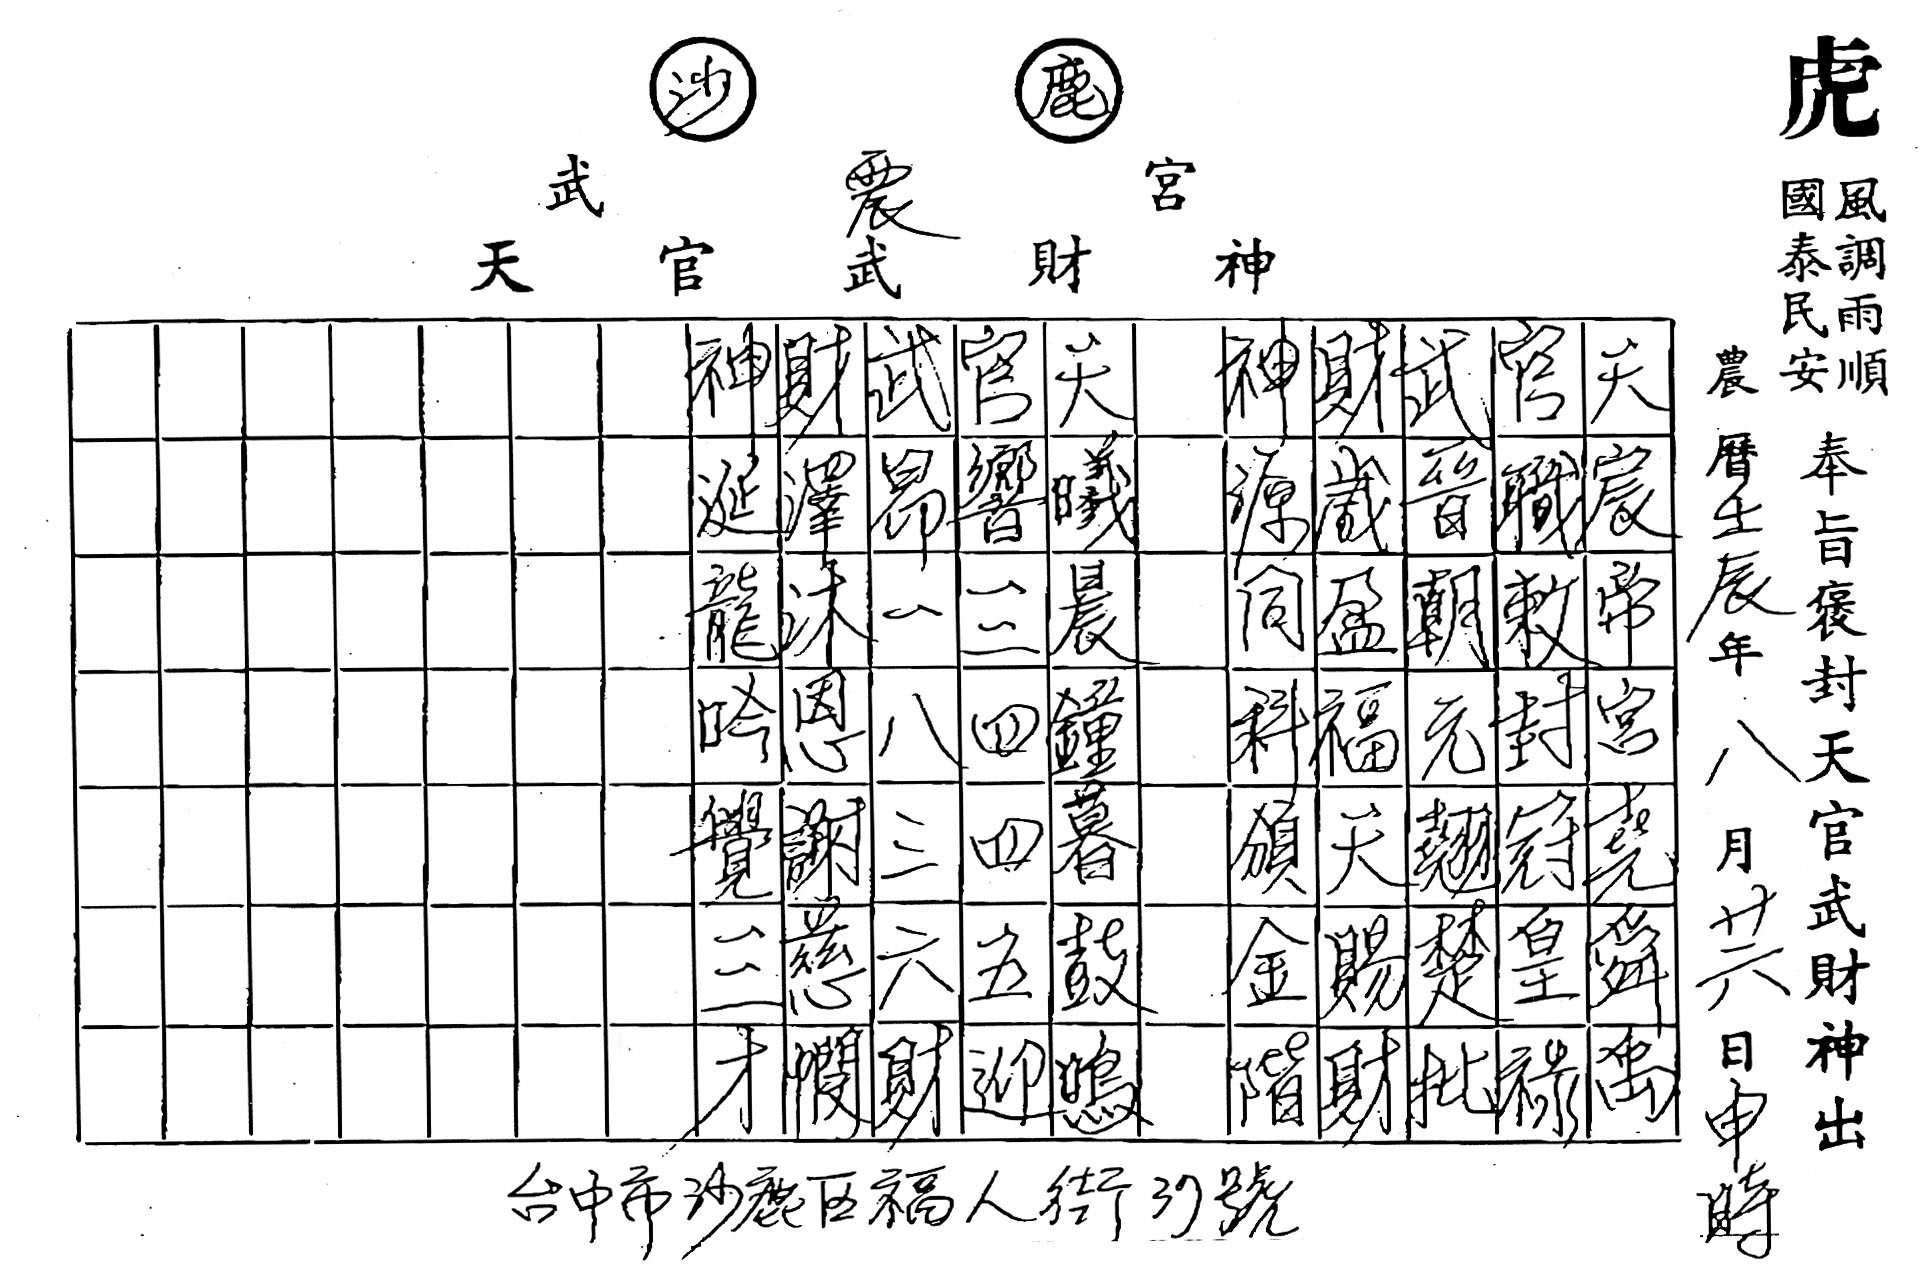 虎
風調雨順
國泰民安
奉旨褒封天官武財神出
農曆壬辰年八月廿六日申時
沙 鹿
武農宮
天官武財神
天宸帝宮堯舜禹
官職敕封冠皇祿
武晉朝元翹楚批
財歲盈福天賜財
神源同科頒金階
天曦晨鐘暮鼓鳴
官響三四四五迎
武昂一八三六財
財澤沐恩謝慈憫
神涎龍吟覺三才
台中市沙鹿区福人街39號